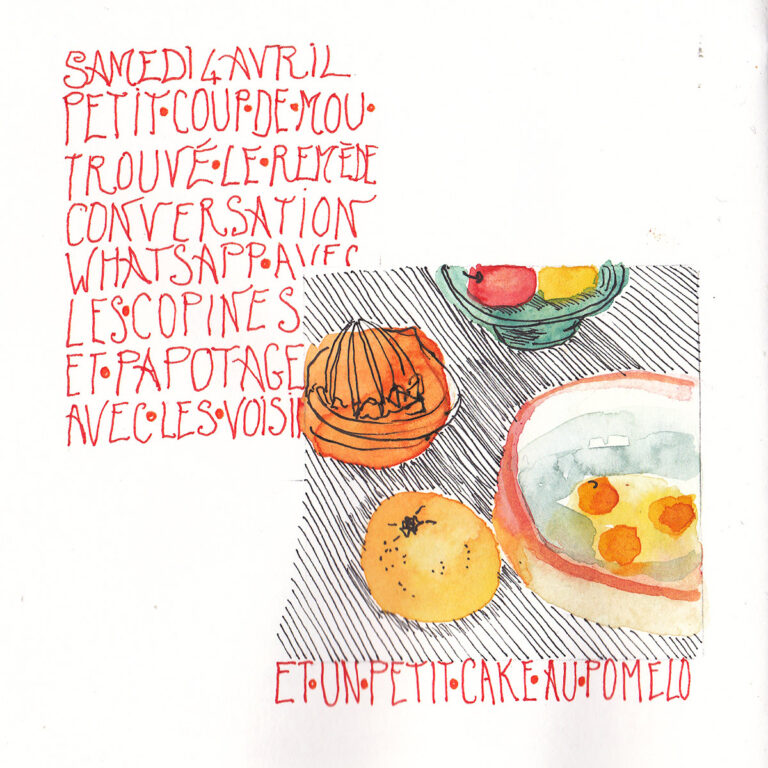 SAMEDI 4 AVRIL
PETIT•COUP•DE•MOU•
TROUVÉ•LE•REMÈDE
CONVERSATION
WHATSAPP•AVEC
LES•COPINES
ET•PAPOTAGE
AVEC•LES•VOISI
ET•UN•PETIT•CAKE•AU•POMELO